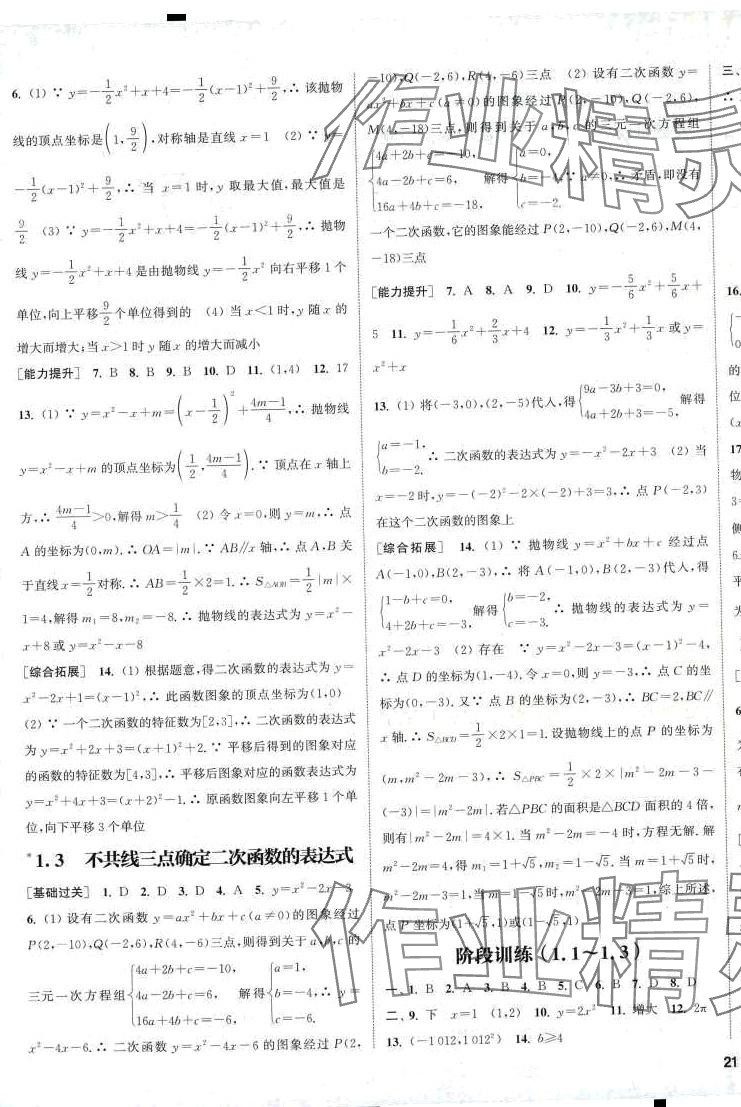 6. (1) ∵ y=-1/2x²+x+4=-1/2(x-1)²+9/2,∴ 该抛物
线的顶点坐标是(1,9/2),对称轴是直线 x=1 (2) ∵ y=
-1/2(x-1)²+9/2,∴ 当 x=1 时,y 取最大值,最大值是
9/2 (3) ∵ y=-1/2x²+x+4=-1/2(x-1)²+9/2,∴ 抛物
线 y=-1/2x²+x+4 是由抛物线 y=-1/2x² 向右平移 1 个
单位,向上平移9/2个单位得到的 (4) 当 x<1 时,y 随 x 的
增大而增大;当 x>1 时 y 随 x 的增大而减小
[能力提升] 7. B 8. B 9. B 10. D 11. (1,4) 12. 17
13. (1) ∵ y=x²-x+m=(x-1/2)²+(4m-1)/4,∴ 抛物线
y=x²-x+m 的顶点坐标为(1/2,(4m-1)/4).∵ 顶点在 x 轴上
方,∴ (4m-1)/4>0,解得 m>1/4 (2) 令 x=0,则 y=m,∴ 点
A 的坐标为(0,m).∴ OA=|m|.∵ AB∥x 轴,∴ 点 A,B 关
于直线 x=1/2对称.∴ AB=1/2×2=1.∴ S△AOB=1/2|m|×
1=4,解得 m₁=8,m₂=-8.∴ 抛物线的表达式为 y=x²-
x+8 或 y=x²-x-8
[综合拓展] 14. (1) 根据题意,得二次函数的表达式为 y=
x²-2x+1=(x-1)²,∴ 此函数图象的顶点坐标为(1,0)
(2) ∵ 一个二次函数的特征数为[2,3],∴ 二次函数的表达式
为 y=x²+2x+3=(x+1)²+2.∵ 平移后得到的图象对应
的函数的特征数为[4,3],∴ 平移后图象对应的函数表达式为
y=x²+4x+3=(x+2)²-1.∴ 原函数图象向左平移 1 个单
位,向下平移 3 个单位
*1.3 不共线三点确定二次函数的表达式
[基础过关] 1. D 2. D 3. D 4. A 5. y=x²-2x-3
6. (1) 设有二次函数 y=ax²+bx+c(a≠0)的图象经过
P(2,-10),Q(-2,6),R(4,-6)三点,则得到关于 a,b,c 的
三元一次方程组{4a+2b+c=-10, 4a-2b+c=6, 16a+4b+c=-6, 解得{a=1, b=-4, c=-6. ∴ y=
x²-4x-6.∴ 二次函数 y=x²-4x-6 的图象经过 P(2,
-10),Q(-2,6),R(4,-6)三点 (2) 设有二次函数 y=
ax²+bx+c(a≠0)的图象经过 P(2,-10),Q(-2,6),
M(4,-18)三点,则得到关于 a,b,c 的三元一次方程组
{4a+2b+c=-10, 4a-2b+c=6, 16a+4b+c=-18, 解得{a=0, b=-4, c=-2. ∵ a≠0,∴ 矛盾,即没有
一个二次函数,它的图象能经过 P(2,-10),Q(-2,6),M(4,
-18)三点
[能力提升] 7. A 8. A 9. D 10. y=-5/6x²+5/6x+
5 11. y=-1/6x²+2/3x+4 12. y=-1/3x²+1/3x 或 y=
x²+x
13. (1) 将(-3,0),(2,-5)代入,得{9a-3b+3=0, 4a+2b+3=-5, 解得
{a=-1, b=-2. ∴ 二次函数的表达式为 y=-x²-2x+3 (2) 当
x=-2 时,y=-(-2)²-2×(-2)+3=3,∴ 点 P(-2,3)
在这个二次函数的图象上
[综合拓展] 14. (1) ∵ 抛物线 y=x²+bx+c 经过点
A(-1,0),B(2,-3),∴ 将 A(-1,0),B(2,-3)代入,得
{1-b+c=0, 4+2b+c=-3, 解得{b=-2, c=-3. ∴ 抛物线的表达式为 y=
x²-2x-3 (2) 存在 ∵ y=x²-2x-3=(x-1)²-4,
∴ 点 D 的坐标为(1,-4).令 x=0,则 y=-3,∴ 点 C 的坐
标为(0,-3).又∵ 点 B 的坐标为(2,-3),∴ BC=2,BC∥
x 轴.∴ S△BCD=1/2×2×1=1.设抛物线上的点 P 的坐标为
(m,m²-2m-3),∴ S△PBC=1/2×2×|m²-2m-3-
(-3)|=|m²-2m|.若△PBC 的面积是△BCD 面积的 4 倍,
则有|m²-2m|=4×1.当 m²-2m=-4 时,方程无解.当
m²-2m=4 时,得 m=1+√5或 m=1-√5,当 m=1+√5时,
m²-2m-3=1,当 m=1-√5时,m²-2m-3=1,综上所述,
点 P 坐标为(1+√5,1)或(1-√5,1)
阶段训练(1.1~1.3)
一、1. B 2. A 3. B 4. B 5. C 6. B 7. D 8. D
二、9. 下 x=1 (1,2) 10. y=2x² 11. 增大 12. 2π
13. (-1 012,1 012²) 14. b≥4
三、
16.
17
21
作业精灵
作业精灵